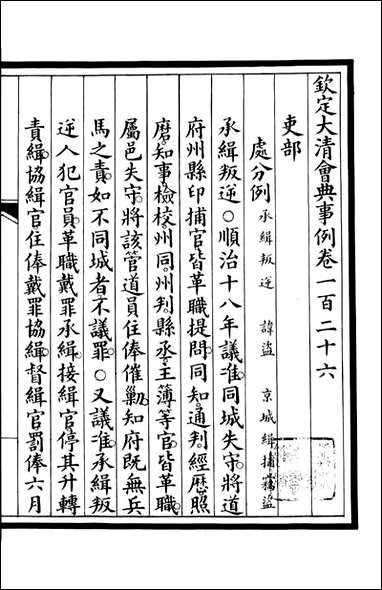 欽定大清會典事例卷一百二十六
吏部
處分例 承緝叛逆 諱盜 京城緝捕竊盜
承緝叛逆○順治十八年議准同城失守將道
府州縣印捕官皆革職提問同知通判經歷照
磨知事檢校州同州判縣丞主簿等官皆革職
屬邑失守將該管道員住俸催勦知府既無兵
馬之責如不同城者不議罪○又議准承緝叛
逆人犯官員革職戴罪承緝接緝官停其升轉
責緝協緝官住俸戴罪協緝督緝官罰俸六月